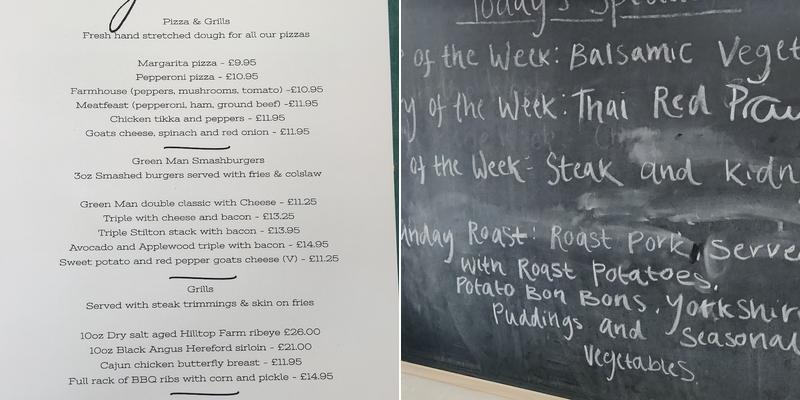 Pizza & Grills
Fresh hand stretched dough for all our pizzas
Margarita pizza - £9.95
Pepperoni pizza - £10.95
Farmhouse (peppers, mushrooms, tomato) -£10.95
Meatfeast (pepperoni, ham, ground beef) -£11.95
Chicken tikka and peppers - £11.95
Goats cheese, spinach and red onion - £11.95
Green Man Smashburgers
3oz Smashed burgers served with fries & colslaw
Green Man double classic with Cheese - £11.25
Triple with cheese and bacon - £13.25
Triple Stilton stack with bacon - £13.95
Avocado and Applewood triple with bacon - £14.95
Sweet potato and red pepper goats cheese (V) - £11.25
Grills
Served with steak trimmings & skin on fries
10oz Dry salt aged Hilltop Farm ribeye £26.00
10oz Black Angus Hereford sirloin - £21.00
Cajun chicken butterfly breast - £11.95
Full rack of BBQ ribs with corn and pickle - £14.95
Today's
of the Week: Balsamic
of the Week: Thai Red
of the Week: Steak and
Roast: Roast Pork,
with Roast Potatoes,
Potato Bon Bons,
Puddings and
Vegetables.